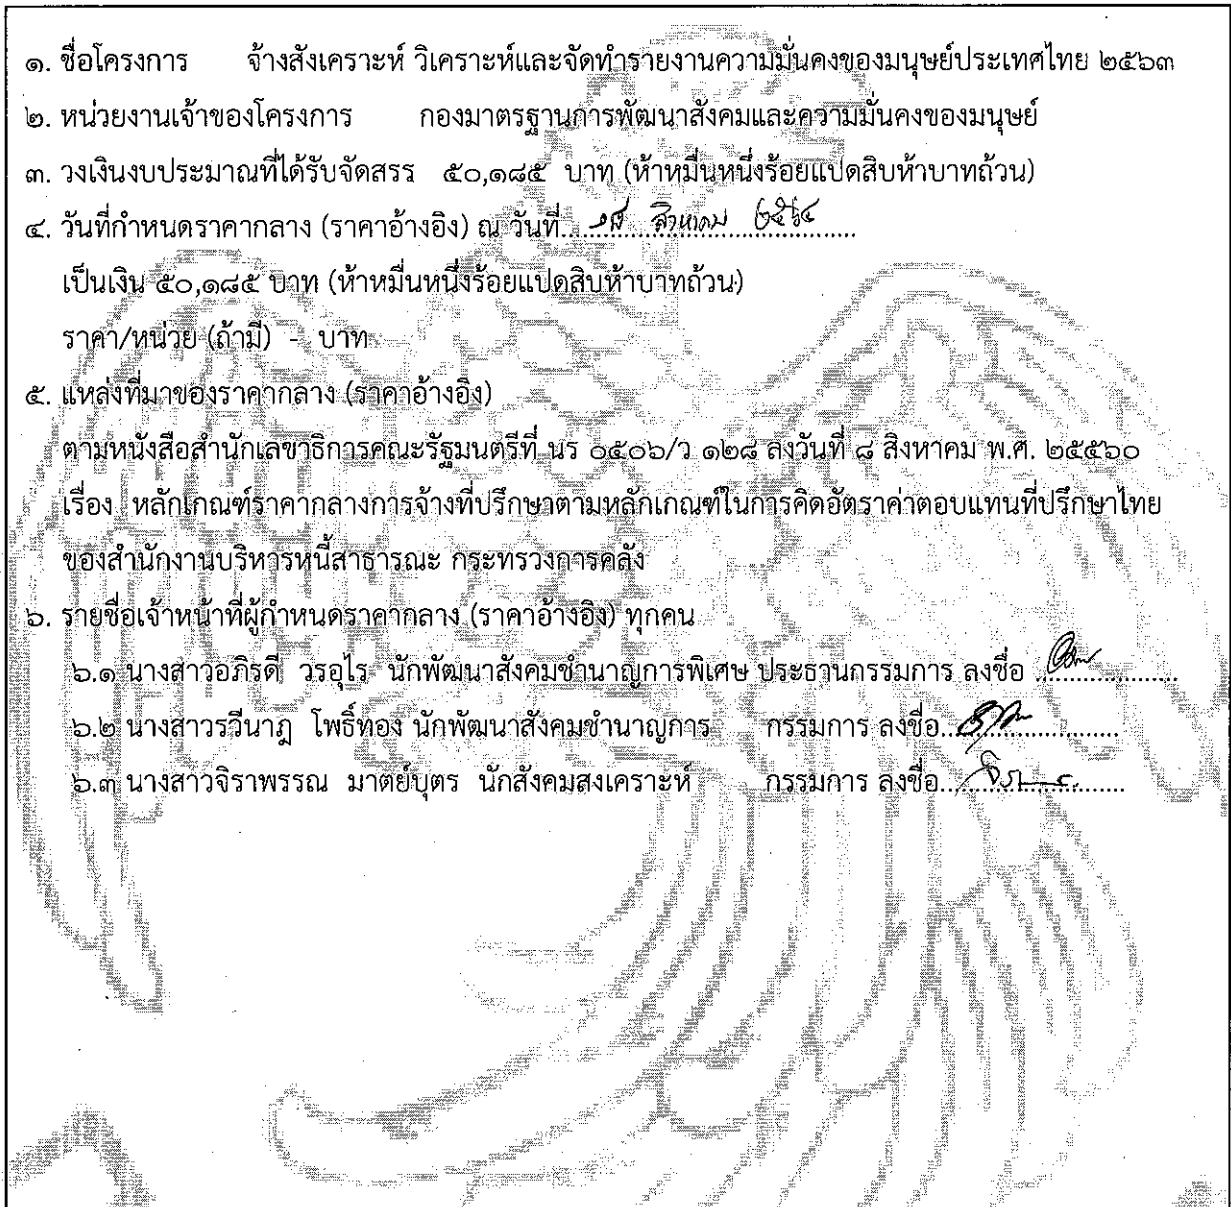 ๑. ชื่อโครงการ จ้างสังเคราะห์ วิเคราะห์และจัดทำรายงานความมั่นคงของมนุษย์ประเทศไทย ๒๕๖๓
๒. หน่วยงานเจ้าของโครงการ กองมาตรฐานการพัฒนาสังคมและความมั่นคงของมนุษย์
๓. วงเงินงบประมาณที่ได้รับจัดสรร ๕๐,๑๘๕ บาท (ห้าหมื่นหนึ่งร้อยแปดสิบห้าบาทถ้วน)
๔. วันที่กำหนดราคากลาง (ราคาอ้างอิง) ณ วันที่..... สิงหาคม ๒๕๖๔.....
เป็นเงิน ๕๐,๑๘๕ บาท (ห้าหมื่นหนึ่งร้อยแปดสิบห้าบาทถ้วน)
ราคา/หน่วย (ถ้ามี) - บาท
๕. แหล่งที่มาของราคากลาง (ราคาอ้างอิง)
ตามหนังสือสำนักเลขาธิการคณะรัฐมนตรีที่ นร ๐๕๐๖/ว ๑๒๘ ลงวันที่ ๘ สิงหาคม พ.ศ. ๒๕๕๖๐
เรื่อง หลักเกณฑ์ราคากลางการจ้างที่ปรึกษาตามหลักเกณฑ์ในการคิดอัตราค่าตอบแทนที่ปรึกษาไทย
ของสำนักงานบริหารหนี้สาธารณะ กระทรวงการคลัง
๖. รายชื่อเจ้าหน้าที่ผู้กำหนดราคากลาง (ราคาอ้างอิง) ทุกคน
๖.๑ นางสาวอภิรดี วรอุไร นักพัฒนาสังคมชำนาญการพิเศษ ประธานกรรมการ ลงชื่อ .....................
๖.๒ นางสาวรวีนาฏ โพธิ์ทอง นักพัฒนาสังคมชำนาญการ กรรมการ ลงชื่อ.........................
๖.๓ นางสาวจิราพรรณ มาตย์บุตร นักสังคมสงเคราะห์ กรรมการ ลงชื่อ.........................